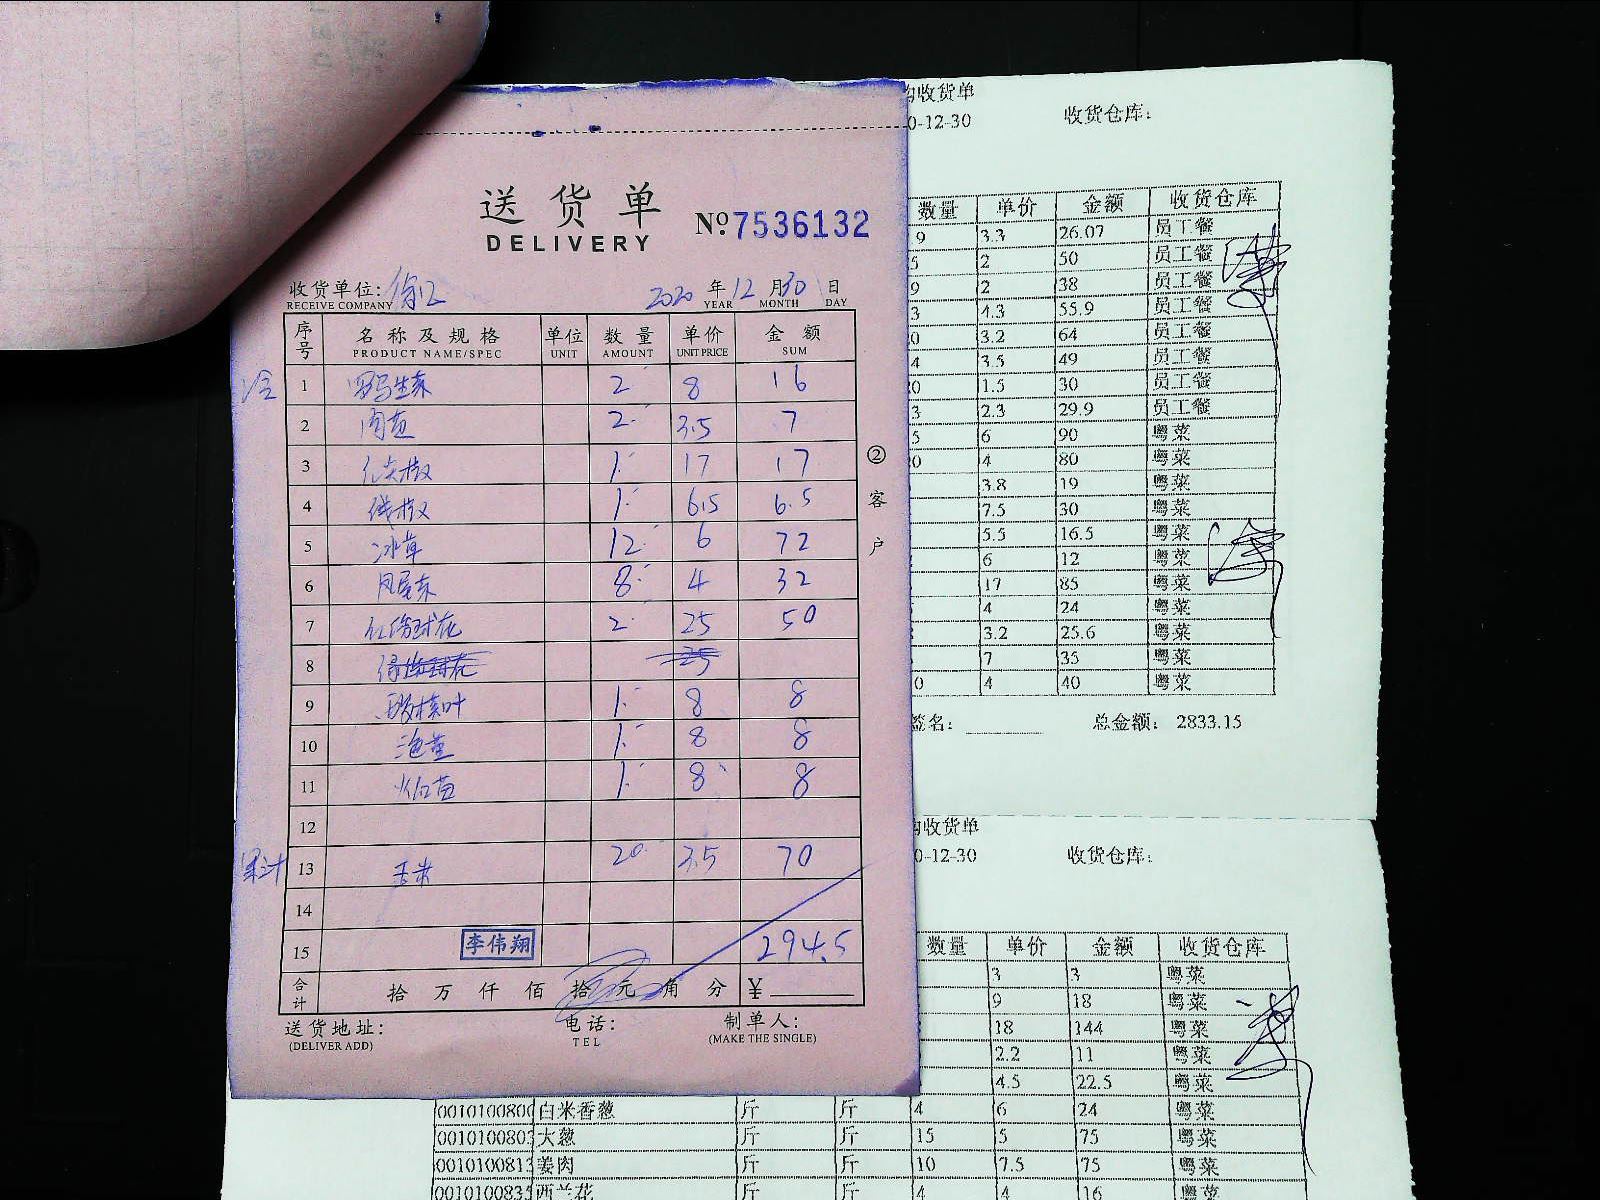 送货单
DELIVERY
№7536132
收货单位:
RECEIVE COMPANY
2020 年 12 月 30 日
YEAR MONTH DAY
序号 名称及规格 单位 数量 单价 金额
PRODUCT NAME/SPEC UNIT AMOUNT UNIT PRICE SUM
1 罗马生菜 2 8 16
2 2 3.5 7
3 红尖椒 1 17 17
4 线椒 1 6.5 6.5
5 冰草 12 6 72
6 8 4 32
7 2 25 50
8 25
9 1 8 8
10 1 8 8
11 1 8 8
12
13 20 3.5 70
14
15 李伟翔 294.5
合计 拾万仟佰拾元角分 ¥
送货地址: 电话: 制单人:
(DELIVER ADD) TEL (MAKE THE SINGLE)
②客户
收货单
0-12-30 收货仓库:
数量 单价 金额 收货仓库
9 3.3 26.07 员工餐
5 2 50 员工餐
9 2 38 员工餐
3 4.3 55.9 员工餐
0 3.2 64 员工餐
4 3.5 49 员工餐
0 1.5 30 员工餐
3 2.3 29.9 员工餐
5 6 90 粤菜
0 4 80 粤菜
3.8 19 粤菜
7.5 30 粤菜
5.5 16.5 粤菜
6 12 粤菜
17 85 粤菜
4 24 粤菜
3.2 25.6 粤菜
7 35 粤菜
0 4 40 粤菜
签名: 总金额: 2833.15
收货单
0-12-30 收货仓库:
数量 单价 金额 收货仓库
3 3 粤菜
9 18 粤菜
18 144 粤菜
2.2 11 粤菜
4.5 22.5 粤菜
0010100800 白米香葱 斤 斤 4 6 24 粤菜
001010080 大葱 斤 斤 15 5 75 粤菜
001010081 姜肉 斤 斤 10 7.5 75 粤菜
001010083 西兰花 斤 斤 4 4 16 粤菜